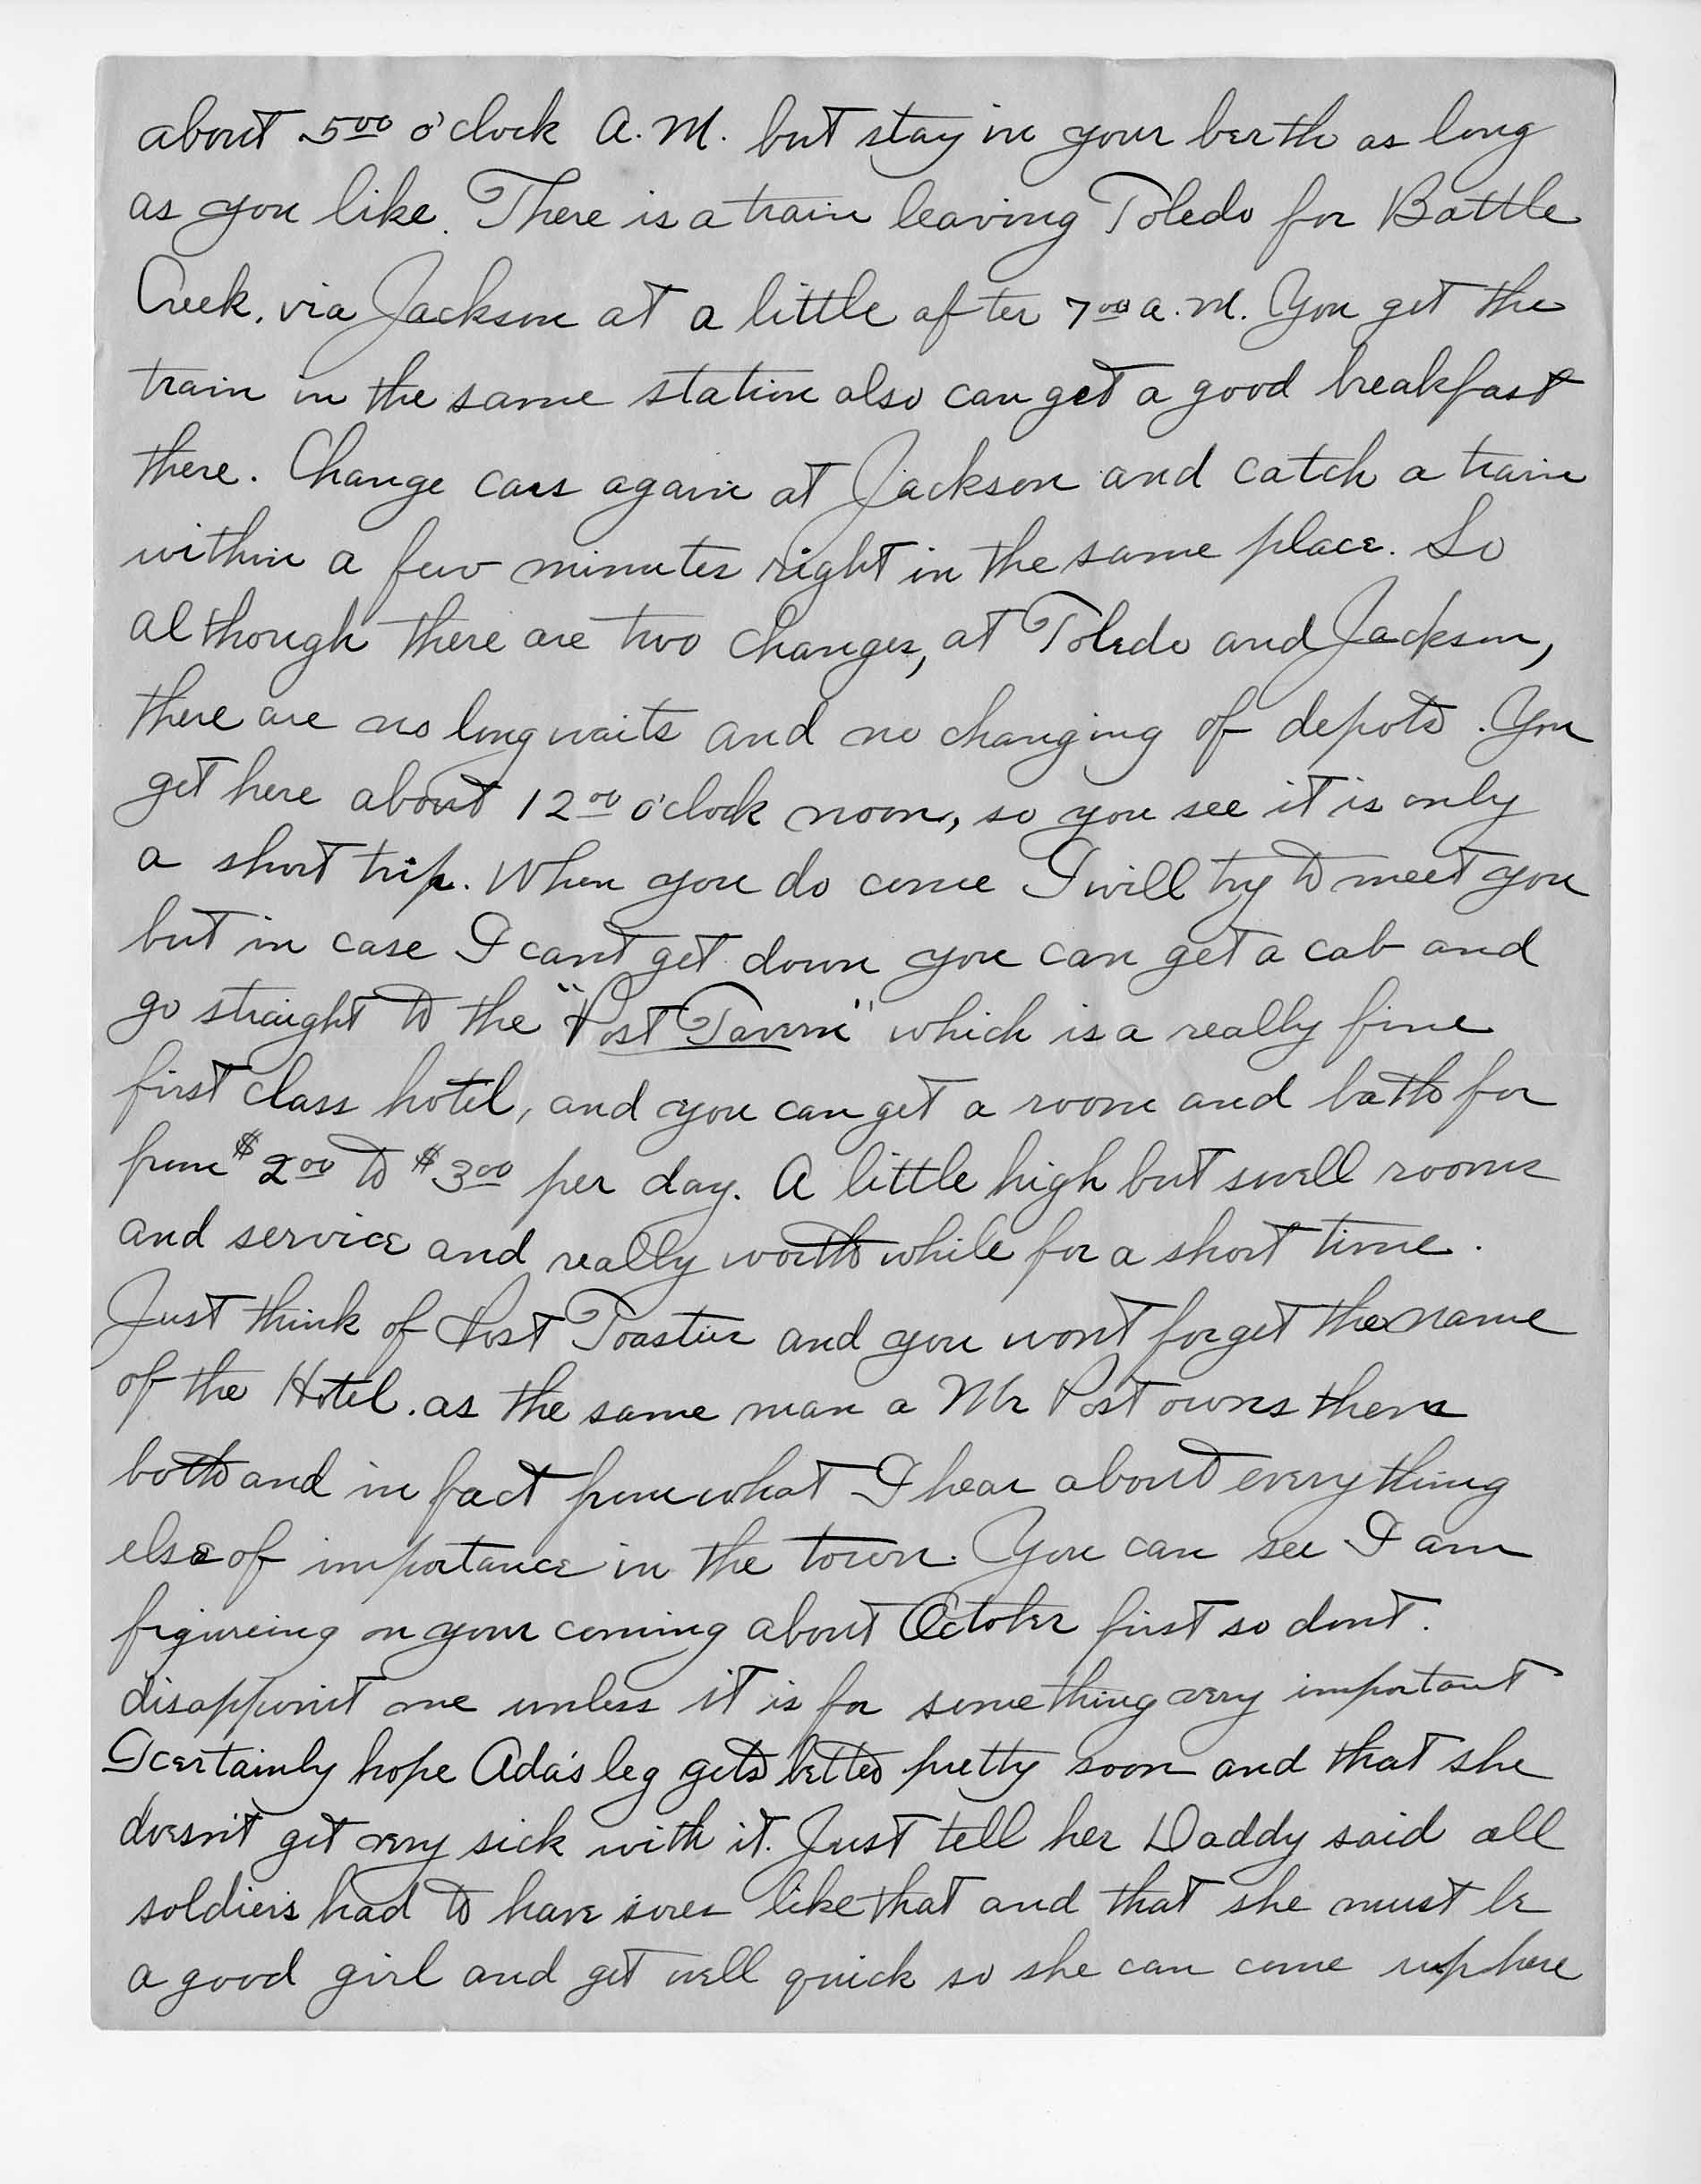 about 5 00 o'clock A.M. but stay in your berth as long
as you like. There is a train leaving Toledo for Battle
Creek, via Jackson at a little after 7 00 a.m. You get the
train in the same station also can get a good breakfast
there. Change cars again at Jackson and catch a train
within a few minutes right in the same place. So
although there are two changes, at Toledo and Jackson,
there are no long waits and no changing of depots. You
get here about 12 00 o'clock noon, so you see it is only
a short trip. When you do come I will try to meet you
but in case I cant get down you can get a cab and
go straight to the "Post Tavern" which is a really fine
first class hotel, and you can get a room and bath for
from $2 00 to $3 00 per day. A little high but swell rooms
and service and really worth while for a short time.
Just think of Post Toasties and you wont forget the name
of the Hotel. as the same man a Mr Post owns them
both and in fact from what I hear about everything
else of importance in the town. You can see I am
figureing on your coming about October first so dont.
disappoint me unless it is for something very important
I certainly hope Ada's leg gets better pretty soon and that she
doesn't get very sick with it. Just tell her Daddy said all
soldiers had to have sores like that and that she must be
a good girl and get well quick so she can come up here